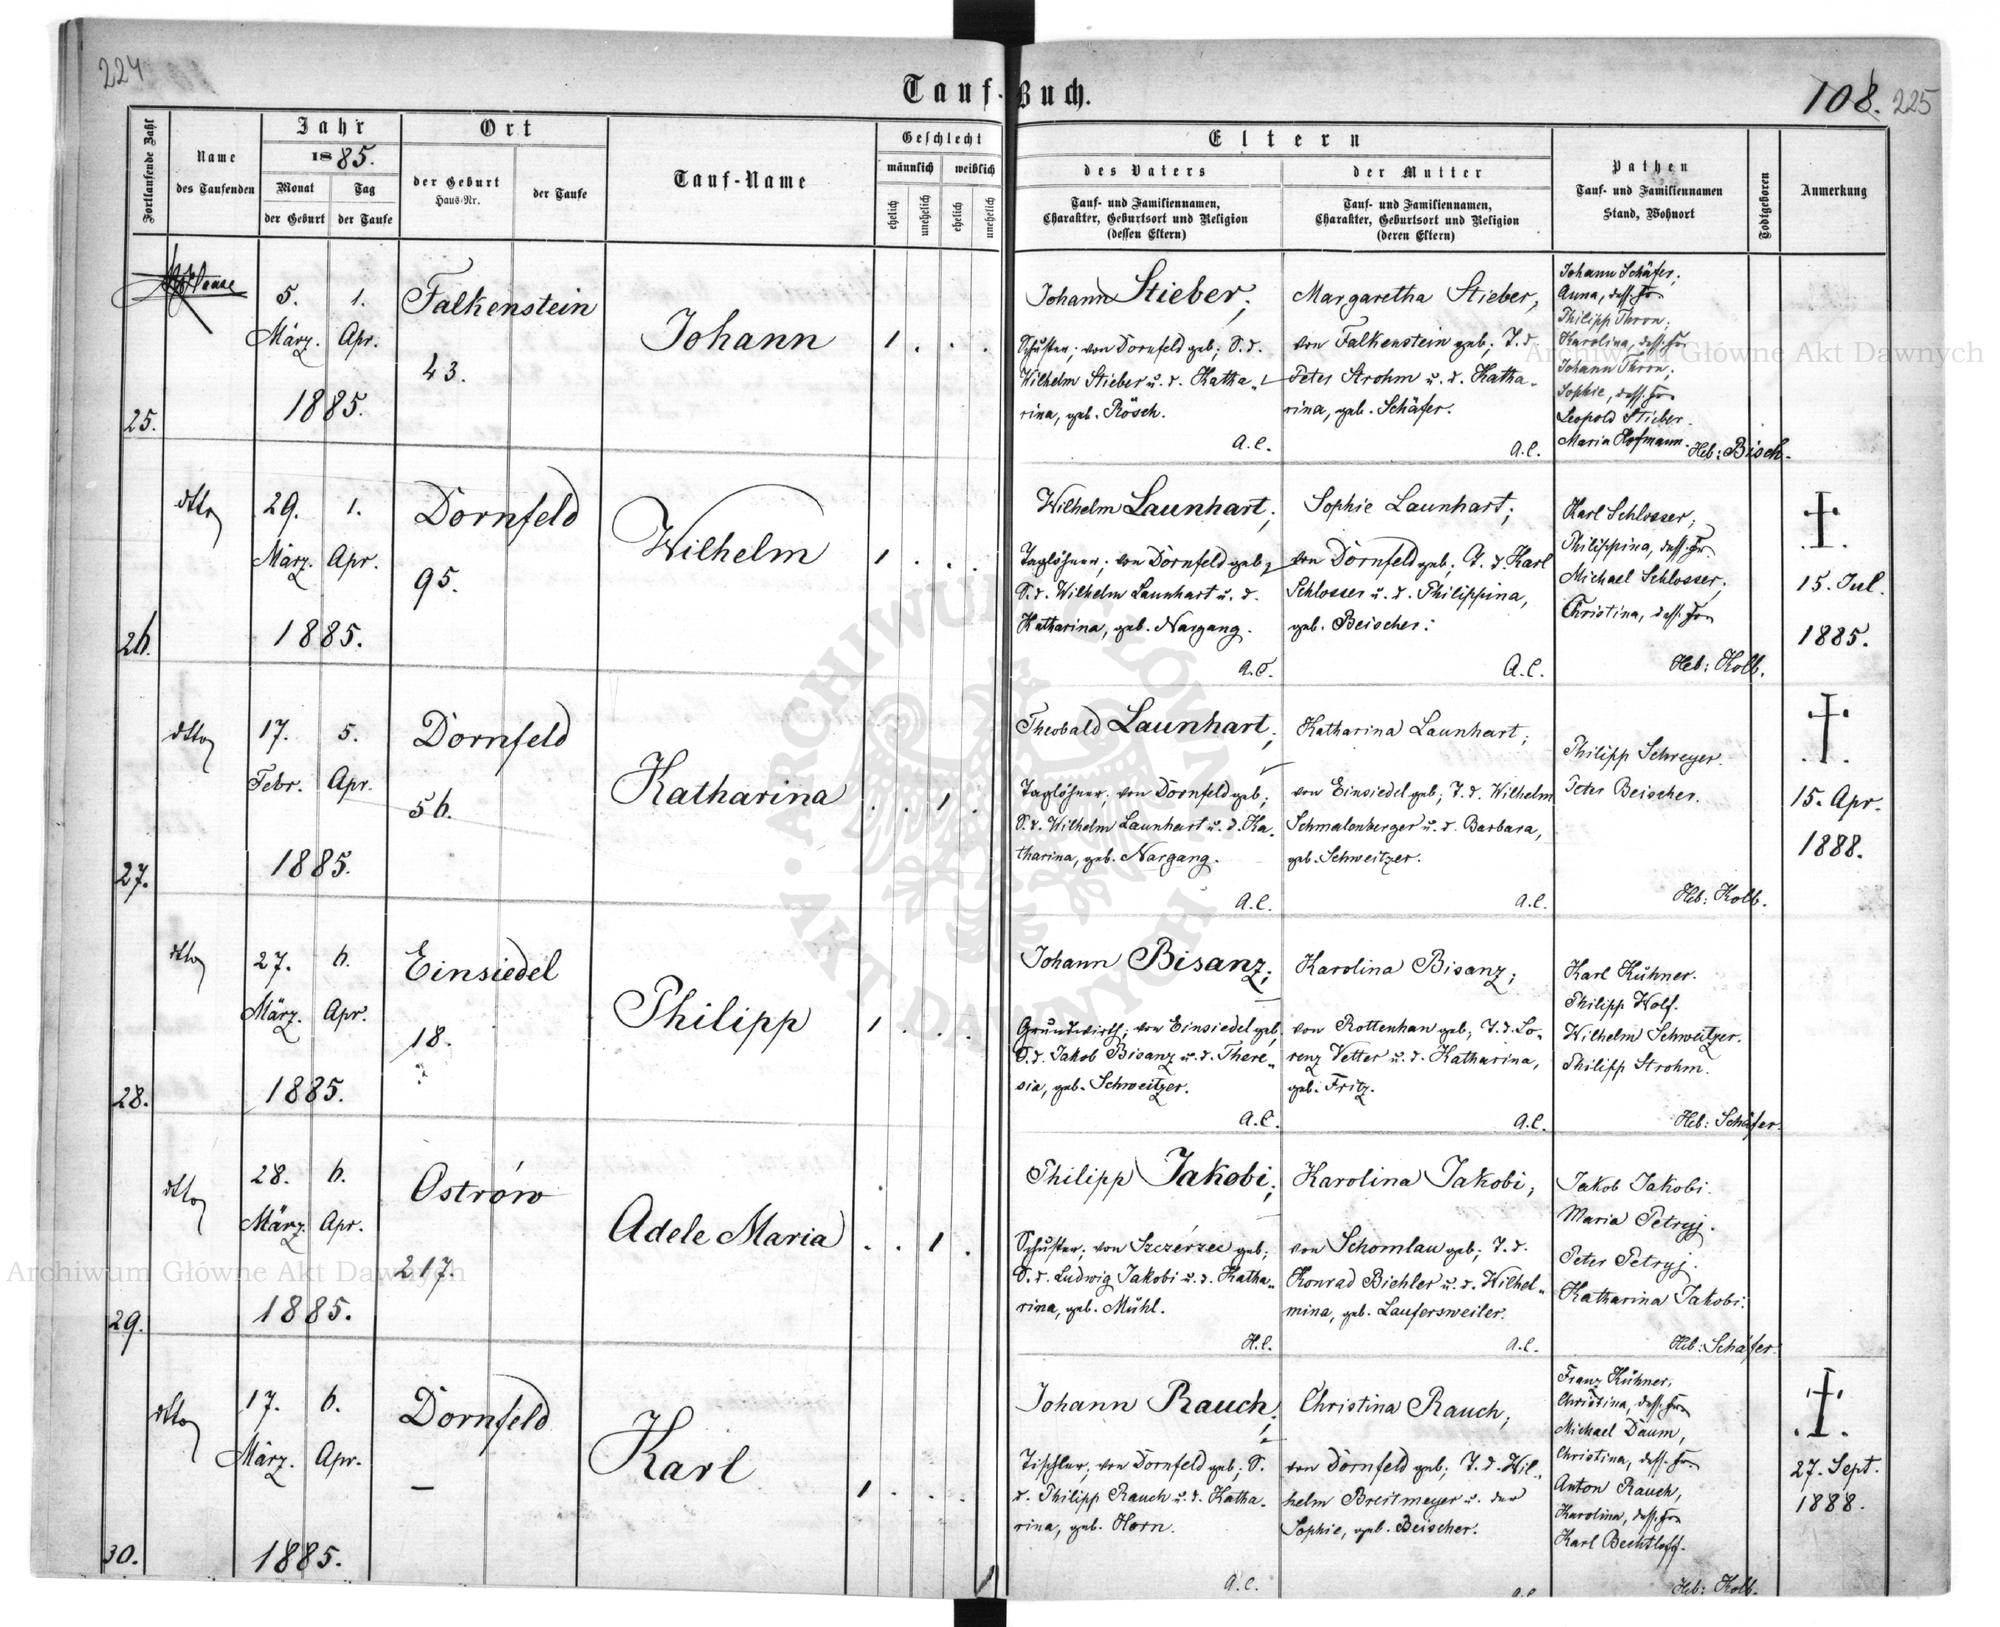 224
Tauf-Buch.
108. 225
Fortlaufende Zahl
Name
des Taufenden
Jahr
1885.
Monat
Tag
der Geburt
der Taufe
Ort
der Geburt
Haus-Nr.
der Taufe
Tauf-Name
Geschlecht
männlich
weiblich
ehelich
unehelich
ehelich
unehelich
Eltern
des Vaters
Tauf- und Familiennamen,
Charakter, Geburtsort und Religion
(dessen Eltern)
der Mutter
Tauf- und Familiennamen,
Charakter, Geburtsort und Religion
(deren Eltern)
Pathen
Tauf- und Familiennamen
Stand, Wohnort
Todtgeboren
Anmerkung
25.
5.
März.
1.
Apr.
1885.
Falkenstein
43.
Johann
1 . . .
Johann Stieber;
Schuster; von Dornfeld geb; S. d.
Wilhelm Stieber u. d. Katha„
rina, geb. Rösch.
A.C.
Margaretha Stieber,
von Falkenstein geb; T. d.
Peter Strohm u. d. Katha„
rina, geb. Schäfer.
A.C.
Johann Schäfer;
Anna, dess. Fr.
Philipp Thron;
Karolina, dess. Fr.
Johann Thron;
Sophie, dess. Fr.
Leopold Stieber.
Maria Hofmann.
Heb: Bisch.
26.
dtto
29.
März.
1.
Apr.
1885.
Dornfeld
95.
Wilhelm
1 . . .
Wilhelm Launhart;
Taglöhner; von Dornfeld geb;
S. d. Wilhelm Launhart u. d.
Katharina, geb. Nargang.
A.C.
Sophie Launhart;
von Dornfeld geb; T. d. Karl
Schlosser u. d. Philippina,
geb. Beischer.
A.C.
Karl Schlosser;
Philippina, dess. Fr.
Michael Schlosser;
Christina, dess. Fr.
Heb: Kolb.
15. Jul.
1885.
27.
dtto
17.
Febr.
5.
Apr.
1885.
Dornfeld
56.
Katharina
. . 1 .
Theobald Launhart;
Taglöhner; von Dornfeld geb;
S. d. Wilhelm Launhart u. d. Ka„
tharina, geb. Nargang.
A.C.
Katharina Launhart;
von Einsiedel geb; T. d. Wilhelm
Schmalenberger u. d. Barbara,
geb. Schweitzer.
A.C.
Philipp Schreyer.
Peter Beischer.
Heb: Kolb.
15. Apr.
1888.
28.
dtto
27.
März.
6.
Apr.
1885.
Einsiedel
18.
Philipp
1 . . .
Johann Bisanz;
Grundwirth; von Einsiedel geb,
S. d. Jakob Bisanz u. d. There„
sia, geb. Schweitzer.
A.C.
Karolina Bisanz;
von Rottenhan geb; T. d. Lo„
renz Vetter u. d. Katharina,
geb. Fritz.
A.C.
Karl Kühner.
Philipp Wolf.
Wilhelm Schweitzer.
Philipp Strohm.
Heb: Schäfer.
29.
dtto
28.
März.
6.
Apr.
1885.
Ostrów
217.
Adele Maria
. . 1 .
Philipp Jakobi;
Schuster; von Szczérzec geb;
S. d. Ludwig Jakobi u. d. Katha„
rina, geb. Mühl.
H.C.
Karolina Jakobi;
von Schomlau geb; T. d.
Konrad Biehler u. d. Wilhel„
mina, geb. Laufersweiler.
A.C.
Jakob Jakobi.
Maria Petryj.
Peter Petryj.
Katharina Jakobi.
Heb: Schäfer.
30.
dtto
17.
März.
6.
Apr.
1885.
Dornfeld
—
Karl
1 . . .
Johann Rauch;
Tischler; von Dornfeld geb; S.
d. Philipp Rauch u. d. Katha„
rina, geb. Horn.
A.C.
Christina Rauch;
von Dornfeld geb; T. d. Wil„
helm Breitmeyer u. der
Sophie, geb. Beischer.
A.C.
Franz Kühner;
Christina, dess. Fr.
Michael Daum,
Christina, dess. Fr.
Anton Rauch,
Karolina, dess. Fr.
Karl Bechtloff.
Heb: Kolb.
27. Sept.
1888.
Archiwum Główne Akt Dawnych
Archiwum Główne Akt Dawnych
ARCHIWUM GŁÓWNE AKT DAWNYCH